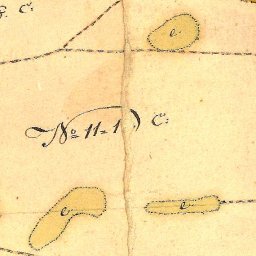 C:
e.
No 11-1) C:
e.
e.